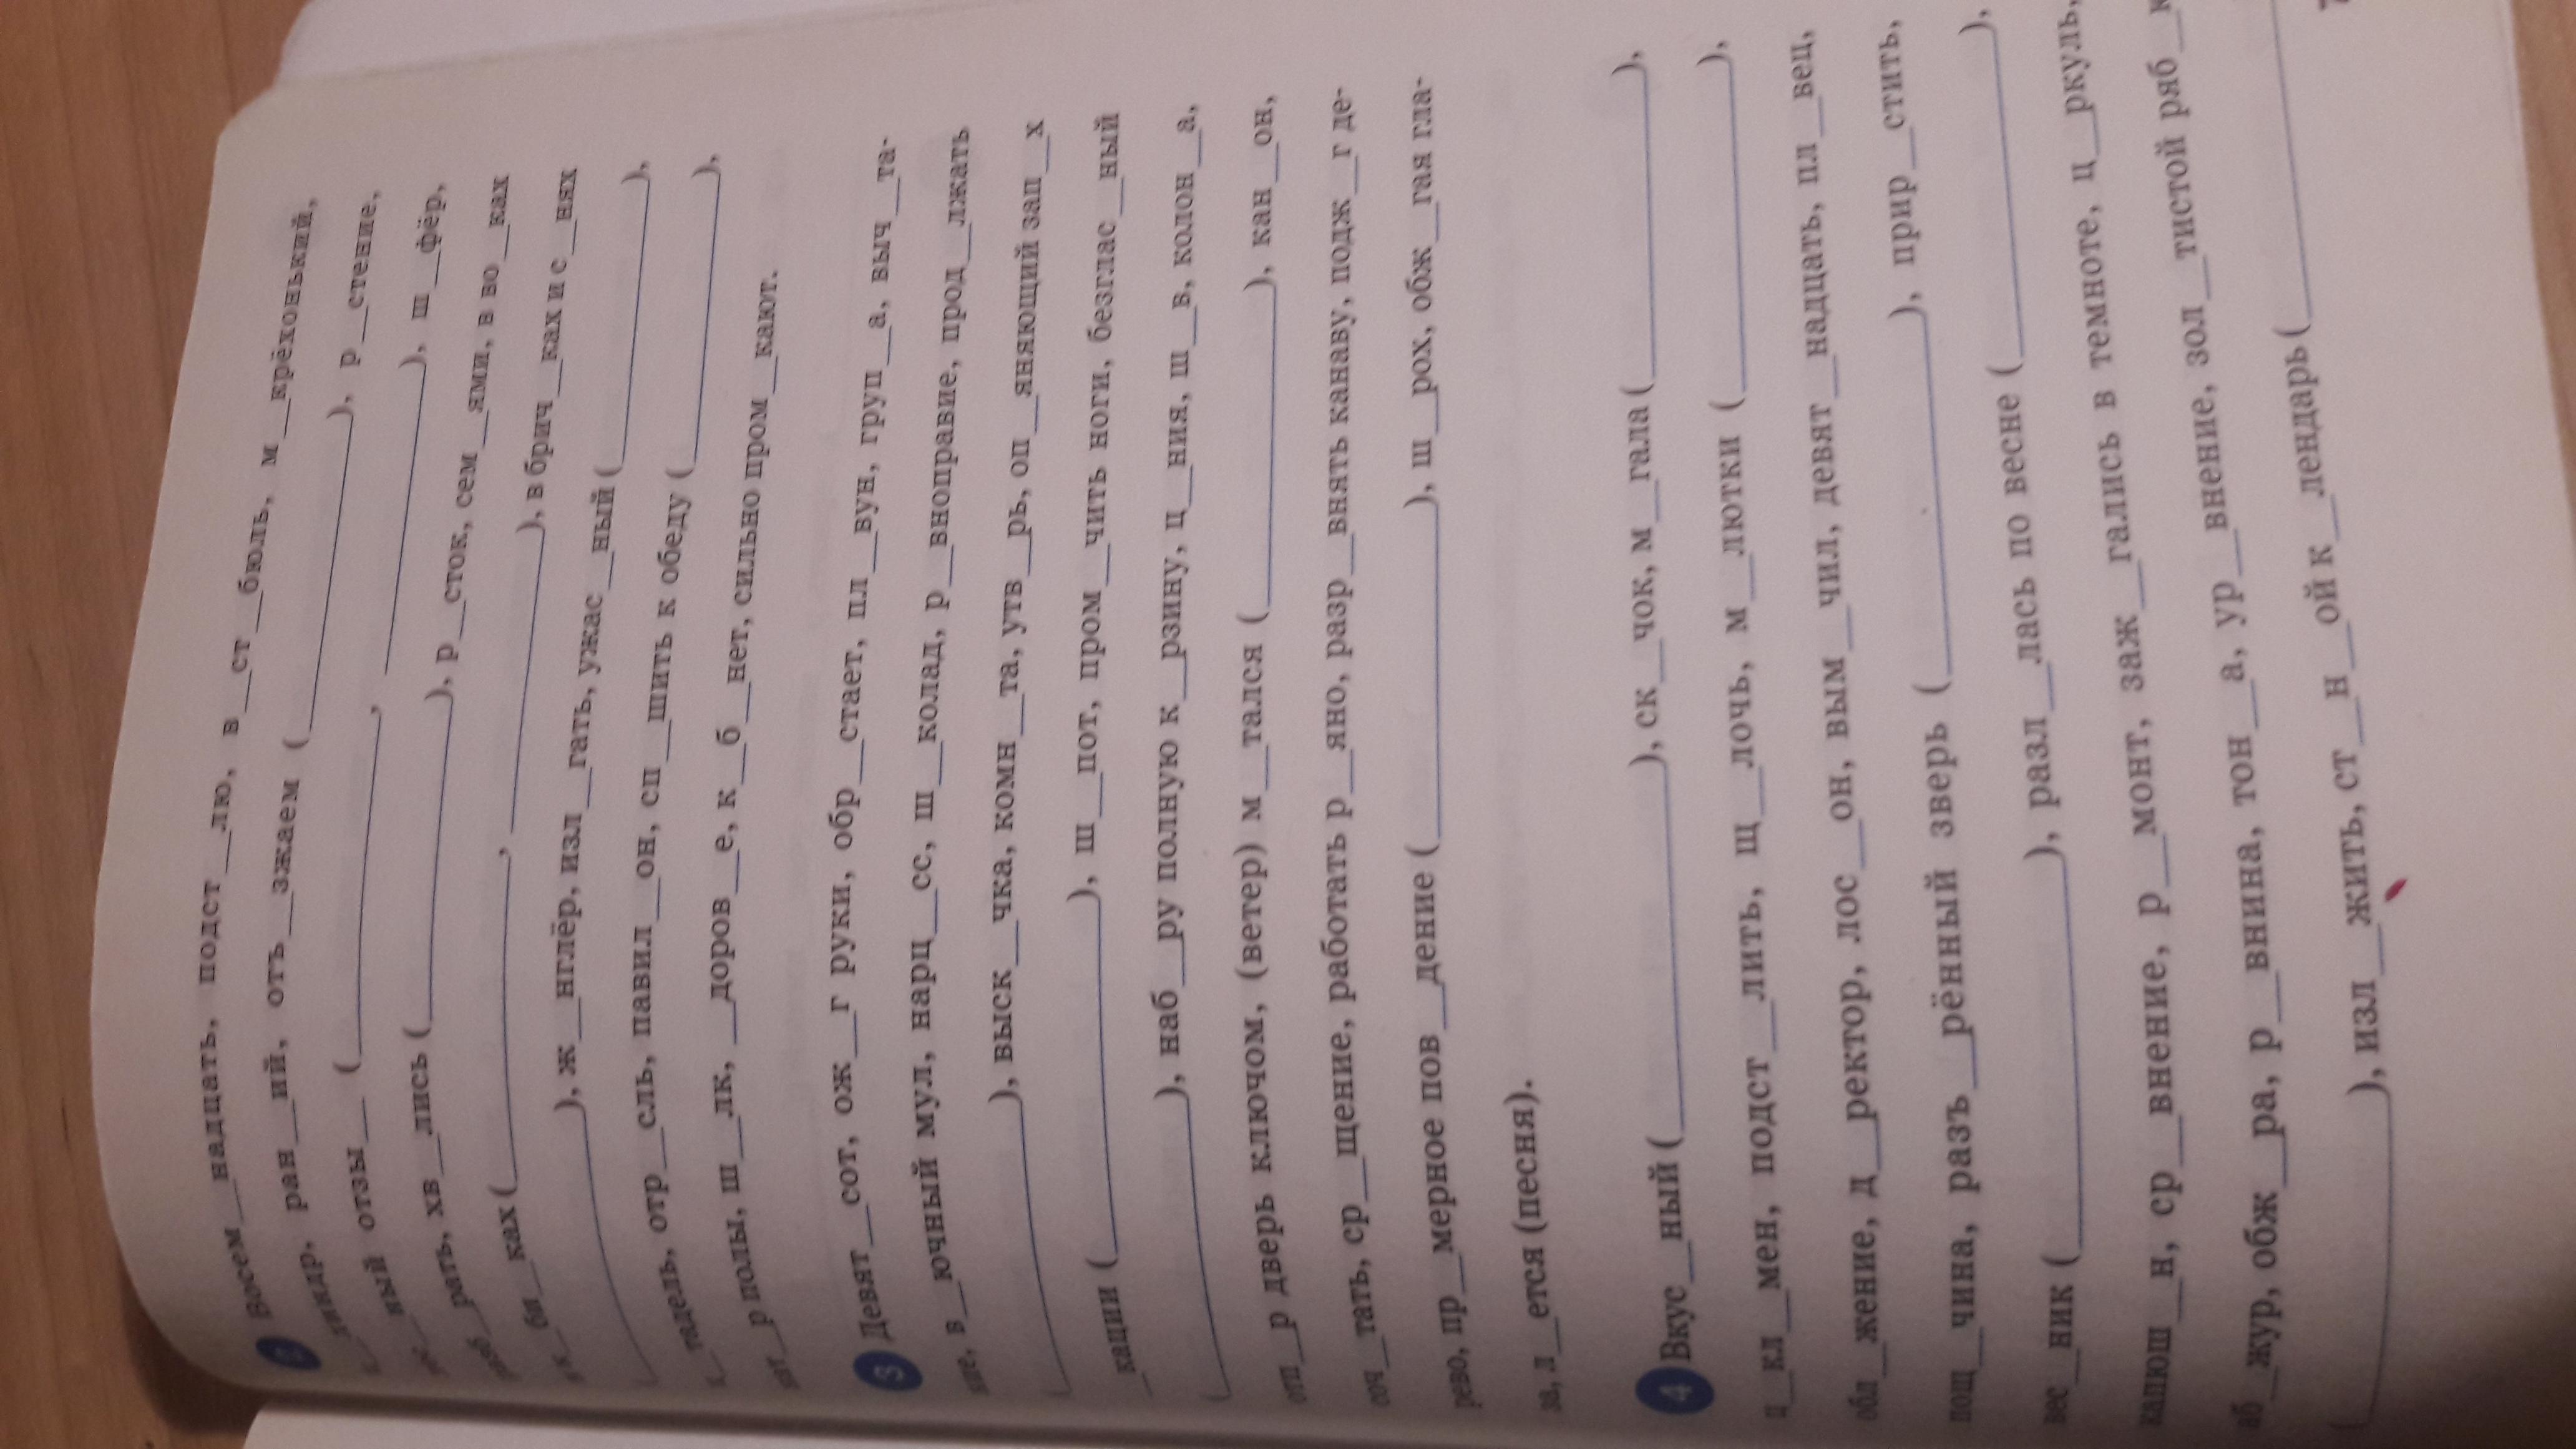 Восем__надцать, подст__лю, в__ст__бюль, м__крёхонький,
ц__линдр, ран__ий, отъ__зжаем (__________), р__стение,
__ный отзы__ (__________, __________), ш__фёр,
__рать, хв__лись (__________), р__сток, сем__ями, в во__ках
__би__ках (__________, __________), в брич__ках и с__нях
(__________), ж__нглёр, изл__гать, ужас__ный (__________),
ц__тадель, отр__сль, павил__он, сп__шить к обеду (__________),
__р полы, ш__лк, __доров__е, к__б__нет, сильно пром__кают.
3 Девят__сот, ож__г руки, обр__стает, пл__вун, груп__а, выч__та-
ние, в__ючный мул, нарц__сс, ш__колад, р__вноправие, прод__лжать
(__________), выск__чка, комн__та, утв__рь, оп__яняющий зап__х
__кации (__________), ш__пот, пром__чить ноги, безглас__ный
(__________), наб__ру полную к__рзину, ц__ния, ш__в, колон__а,
отп__р дверь ключом, (ветер) м__тался (__________), кан__он,
соч__тать, ср__щение, работать р__яно, разр__внять канаву, подж__г де-
рево, пр__мерное пов__дение (__________), ш__рох, обж__гая гла-
за, л__ется (песня).
4 Вкус__ный (__________), ск__чок, м__гала (__________),
ц__кл__мен, подст__лить, щ__лочь, м__лютки (__________),
обл__жение, д__ректор, лос__он, вым__чил, девят__надцать, пл__вец,
пощ__чина, разъ__рённый зверь (__________), прир__стить,
вес__ник (__________), разл__лась по весне (__________),
капюш__н, ср__внение, р__монт, заж__гались в темноте, ц__ркуль,
аб__жур, обж__ра, р__внина, тон__а, ур__внение, зол__тистой ряб__
(__________), изл__жить, ст__н__ой к__лендарь (__________